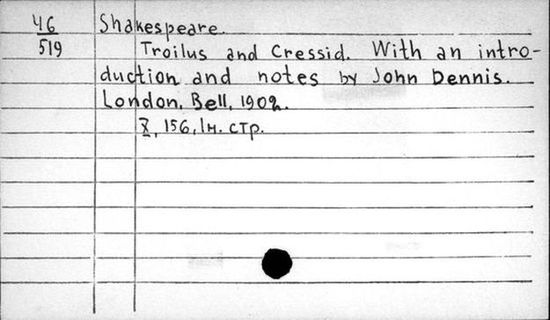 46
519
Shakespeare.
Troilus and Cressid. With an intro-
duction and notes by John Dennis.
London, Bell, 1902.
X, 156, 1н. стр.